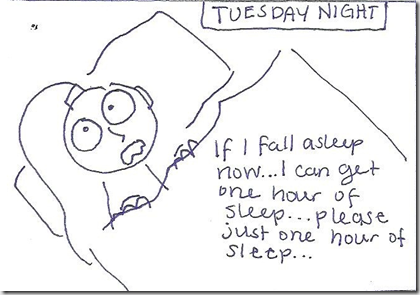 TUESDAY NIGHT
If I fall asleep
now...I can get
one hour of
sleep...please
just one hour of
sleep...